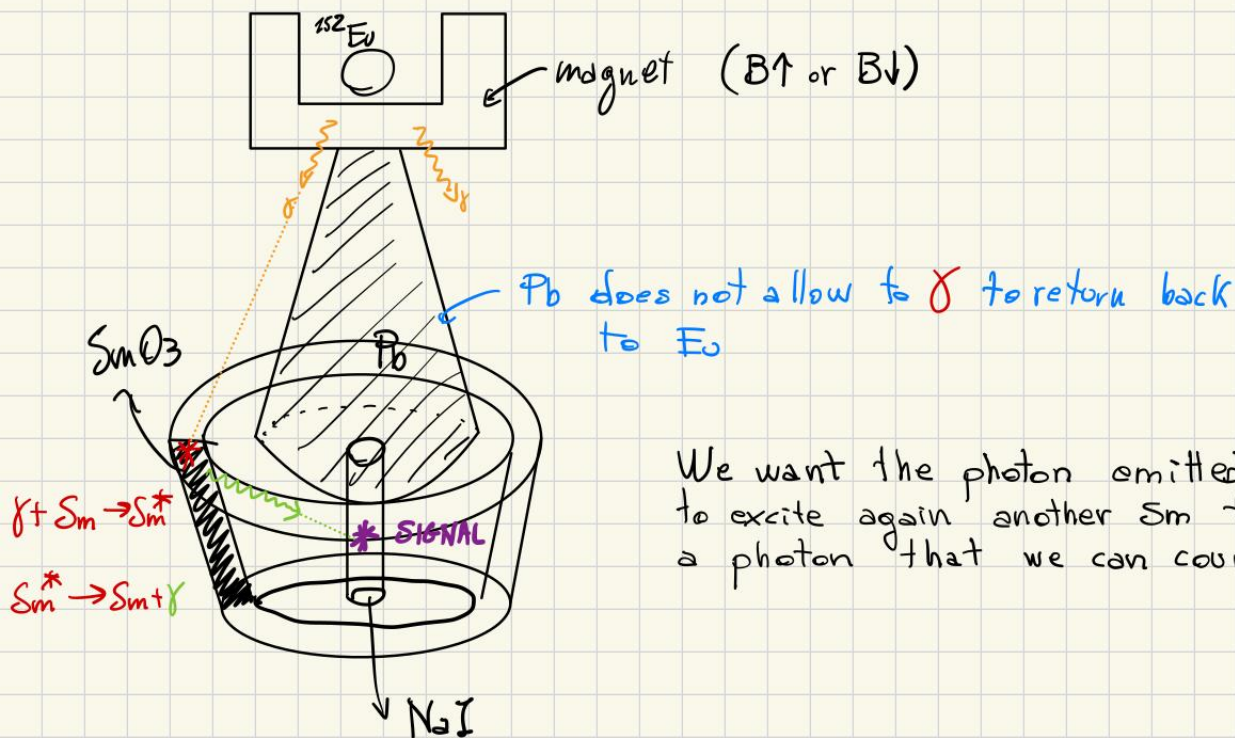 ¹⁵²Eu
magnet (B↑ or B↓)
γ
γ
Pb does not allow to γ to return back
to Eu
Pb
SmO3
We want the photon emitted
to excite again another Sm
a photon that we can cou
γ + Sm → Sm*
SIGNAL
Sm* → Sm + γ
NaI